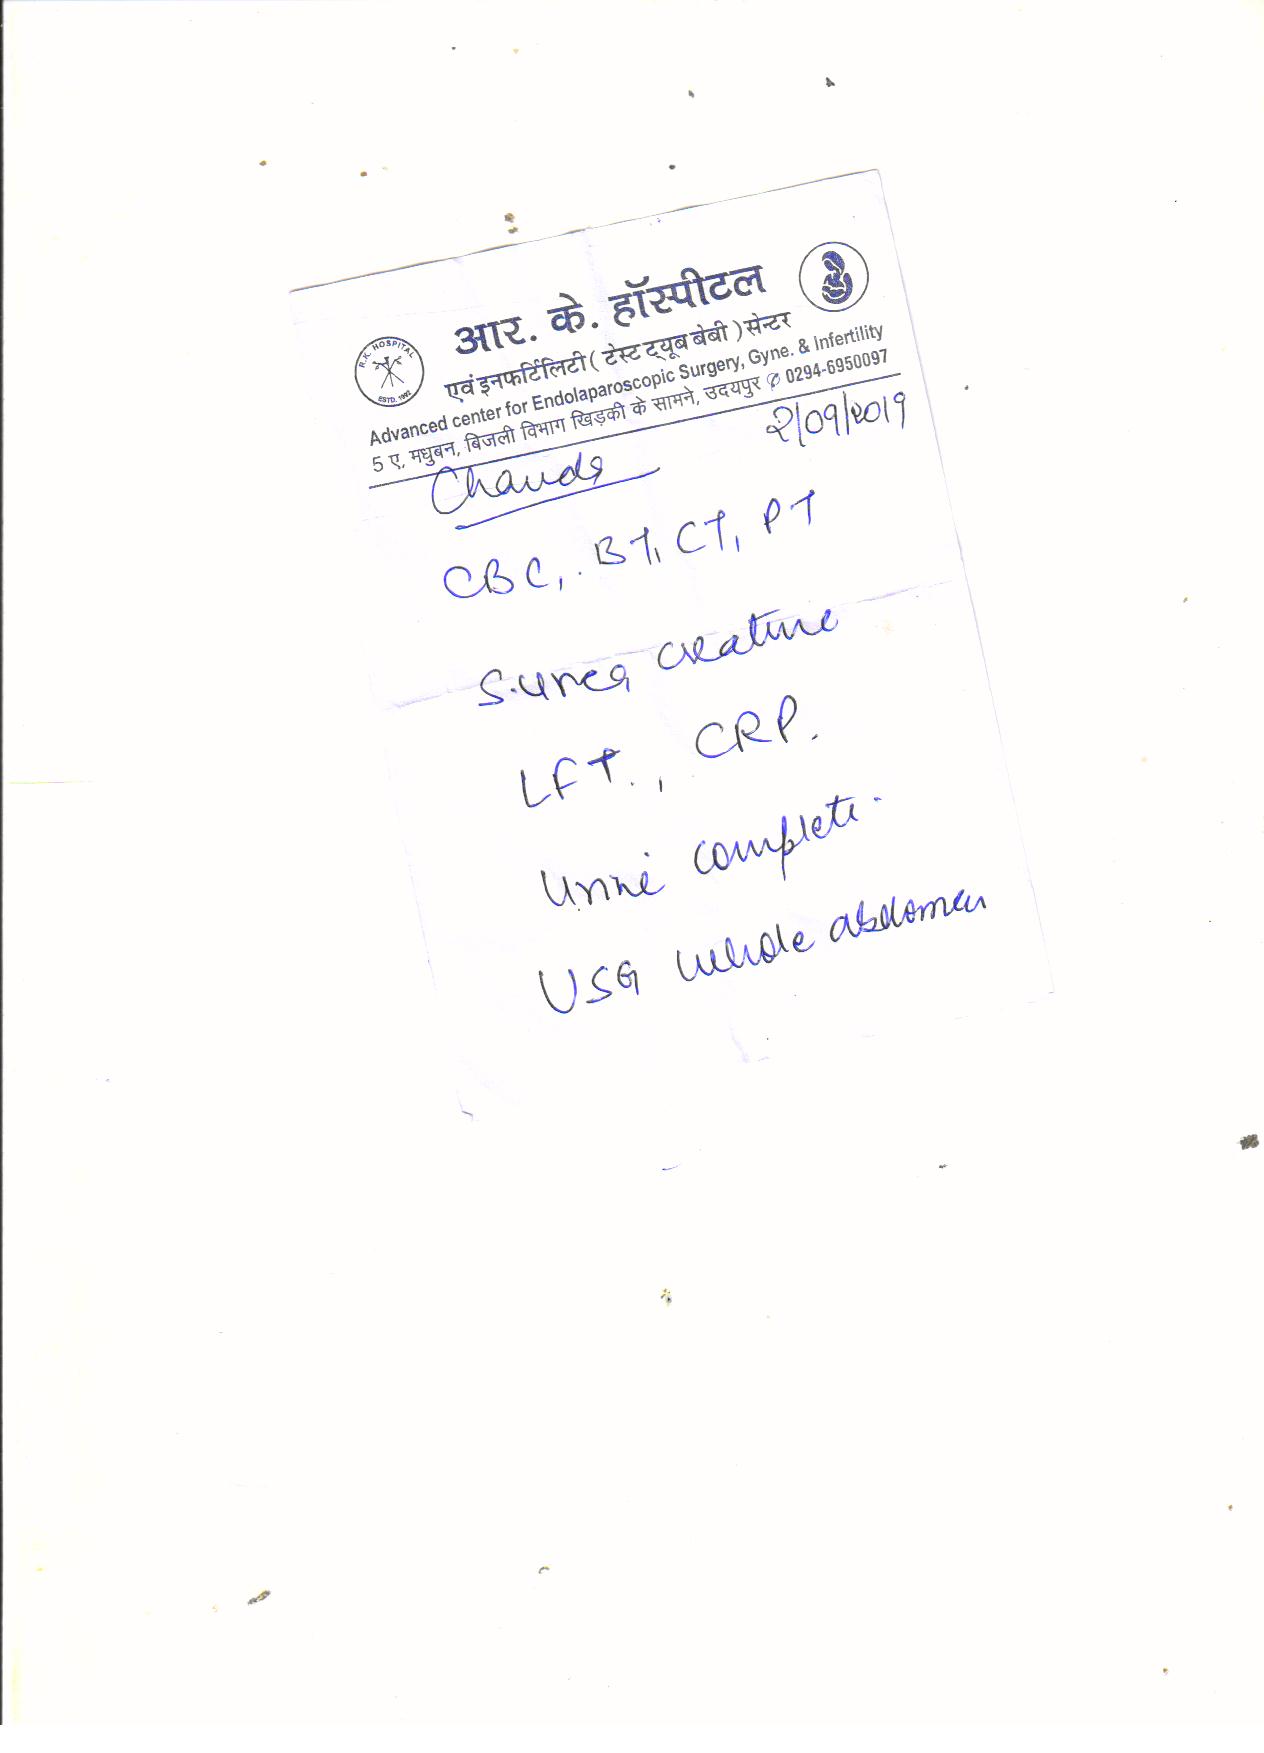 आर. के. हॉस्पीटल
एवं इनफर्टिलिटी ( टेस्ट ट्यूब बेबी ) सेन्टर
R.K. HOSPITAL
ESTD. 1992
Advanced center for Endolaparoscopic Surgery, Gyne. & Infertility
5 ए, मधुबन, बिजली विभाग खिड़की के सामने, उदयपुर ✆ 0294-6950097
2/09/2019
Chanda
CBC, BT, CT, PT
S. urea creatine
LFT., CRP.
Urine complete.
USG whole abdomen